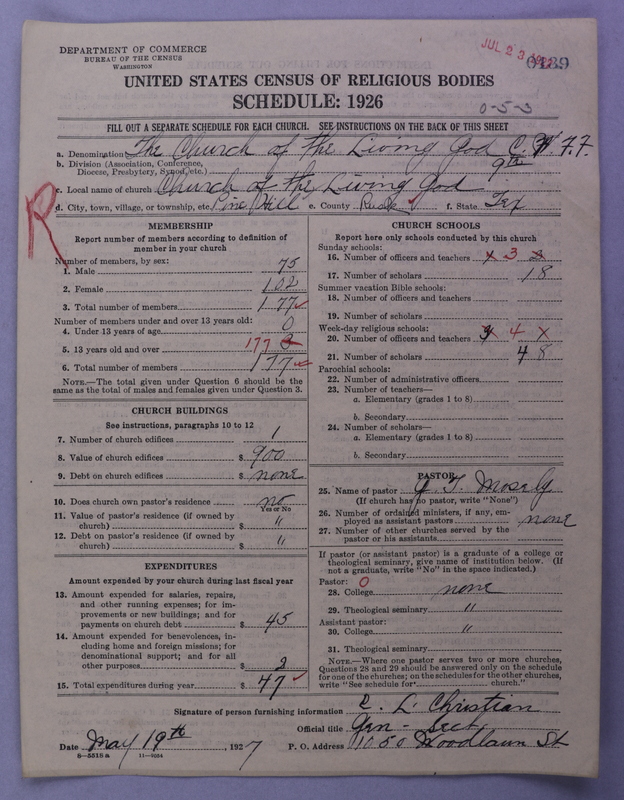 DEPARTMENT OF COMMERCE
BUREAU OF THE CENSUS
WASHINGTON
JUL 23
0-5-3
UNITED STATES CENSUS OF RELIGIOUS BODIES
SCHEDULE: 1926
FILL OUT A SEPARATE SCHEDULE FOR EACH CHURCH. SEE INSTRUCTIONS ON THE BACK OF THIS SHEET
a. Denomination The Church of the Living God C. W. F. F.
b. Division (Association, Conference, Diocese, Presbytery, Synod, etc.) 9th
c. Local name of church Church of the Living God
d. City, town, village, or township, etc. Pine Hill e. County Rusk f. State Tex
R
MEMBERSHIP
Report number of members according to definition of member in your church
Number of members, by sex:
1. Male 75
2. Female 102
3. Total number of members 177
Number of members under and over 13 years old:
4. Under 13 years of age 0
5. 13 years old and over 177
6. Total number of members 177
NOTE.—The total given under Question 6 should be the same as the total of males and females given under Question 3.
CHURCH BUILDINGS
See instructions, paragraphs 10 to 12
7. Number of church edifices 1
8. Value of church edifices $ 900
9. Debt on church edifices $ none
10. Does church own pastor's residence no
Yes or No
11. Value of pastor's residence (if owned by church) $ "
12. Debt on pastor's residence (if owned by church) $ "
EXPENDITURES
Amount expended by your church during last fiscal year
13. Amount expended for salaries, repairs, and other running expenses; for improvements or new buildings; and for payments on church debt $ 45
14. Amount expended for benevolences, including home and foreign missions; for denominational support; and for all other purposes $ 2
15. Total expenditures during year $ 47
CHURCH SCHOOLS
Report here only schools conducted by this church
Sunday schools:
16. Number of officers and teachers x 3
17. Number of scholars 18
Summer vacation Bible schools:
18. Number of officers and teachers
19. Number of scholars
Week-day religious schools:
20. Number of officers and teachers 4 x
21. Number of scholars 48
Parochial schools:
22. Number of administrative officers
23. Number of teachers—
a. Elementary (grades 1 to 8)
b. Secondary
24. Number of scholars—
a. Elementary (grades 1 to 8)
b. Secondary
PASTOR
25. Name of pastor J. T. Mosely
(If church has no pastor, write "None")
26. Number of ordained ministers, if any, employed as assistant pastors none
27. Number of other churches served by the pastor or his assistants
If pastor (or assistant pastor) is a graduate of a college or theological seminary, give name of institution below. (If not a graduate, write "No" in the space indicated.)
Pastor: 0
28. College none
29. Theological seminary "
Assistant pastor:
30. College "
31. Theological seminary
NOTE.—Where one pastor serves two or more churches, Questions 28 and 29 should be answered only on the schedule for one of the churches; on the schedules for the other churches, write "See schedule for church."
Signature of person furnishing information L. Christian
Official title Gen - Sect
Date May 19th, 1927 P. O. Address 1050 Woodlawn St
8-5518 a 11-9034